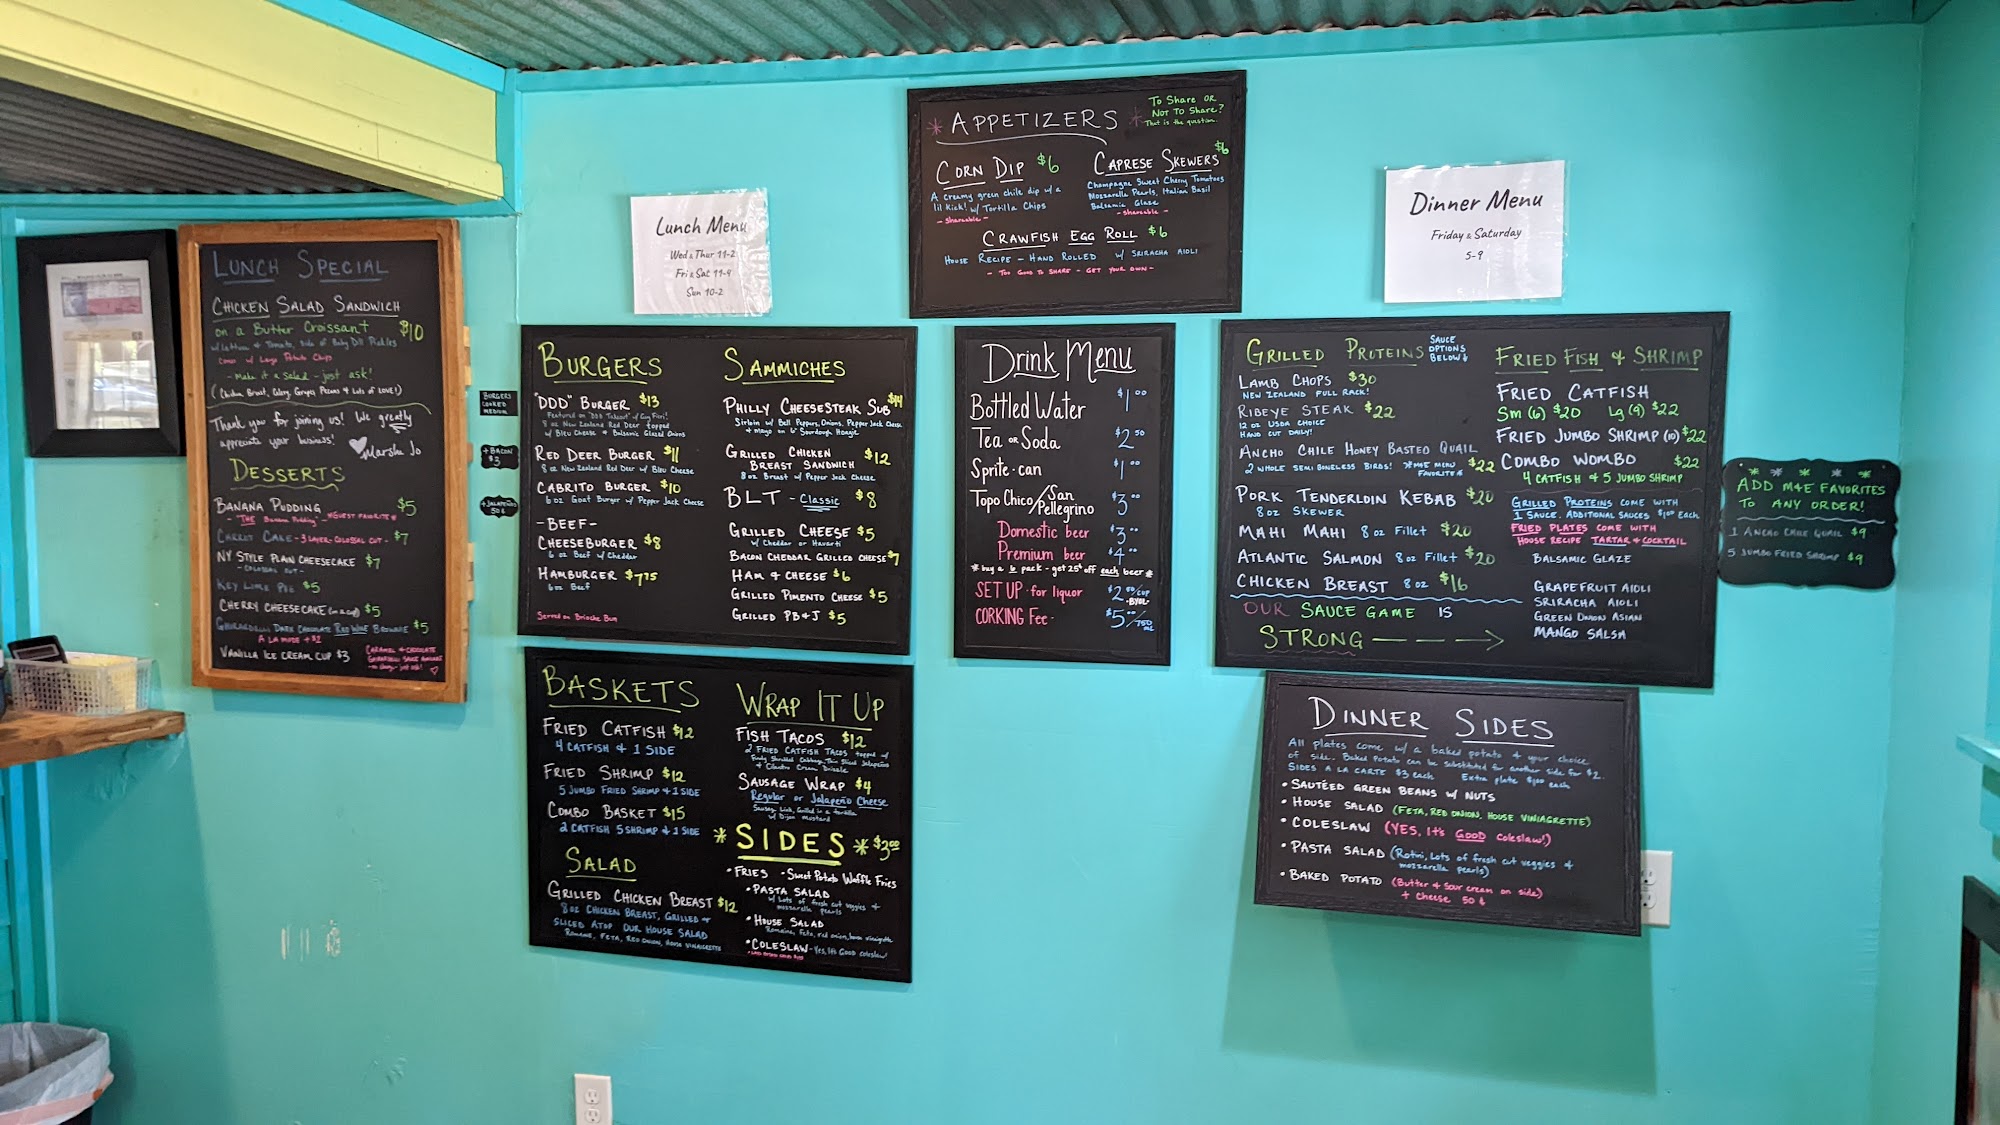 LUNCH SPECIAL
CHICKEN SALAD SANDWICH
on a Butter Croissant $10
w/ Lettuce & Tomato, side of Baby Dill Pickles
comes w/ Lays Potato Chips
- Make it a salad - just ask!
(Chicken Breast, Celery, Grapes, Pecans & Lots of LOVE!)
Thank you for joining us! We greatly
appreciate your business!
Marsha Jo
DESSERTS
BANANA PUDDING $5
- "THE Banana Pudding" - *GUEST FAVORITE*
CARROT CAKE - 3 LAYER - COLOSSAL CUT - $7
NY STYLE PLAIN CHEESECAKE $7
- COLOSSAL CUT -
KEY LIME PIE $5
CHERRY CHEESECAKE (in a cup) $5
GHIRARDELLI DARK CHOCOLATE RED WINE BROWNIE $5
A LA MODE + $2
VANILLA ICE CREAM CUP $3
CARAMEL & CHOCOLATE
GHIRARDELLI SAUCE AVAILABLE
- no charge - just ask!
BURGERS
COOKED
MEDIUM
+ BACON
$3
+ JALAPEÑOS
50¢
Lunch Menu
Wed & Thur 11-2
Fri & Sat 11-4
Sun 10-2
BURGERS
"DDD" BURGER $13
Featured on "DDD Takeout" w/ Guy Fieri!
8 oz New Zealand Red Deer topped
w/ Bleu Cheese & Balsamic Glazed Onions
RED DEER BURGER $11
8 oz New Zealand Red Deer w/ Bleu Cheese
CABRITO BURGER $10
6 oz Goat Burger w/ Pepper Jack Cheese
- BEEF -
CHEESEBURGER $8
6 oz Beef w/ Cheddar
HAMBURGER $7.75
6 oz Beef
Served on Brioche Bun
SAMMICHES
PHILLY CHEESESTEAK SUB $14
Sirloin w/ Bell Peppers, Onions, Pepper Jack Cheese
& Mayo on 6" Sourdough Hoagie
GRILLED CHICKEN
BREAST SANDWICH $12
8 oz Breast w/ Pepper Jack Cheese
BLT - Classic $8
GRILLED CHEESE $5
w/ Cheddar or Havarti
BACON CHEDDAR GRILLED CHEESE $7
HAM & CHEESE $6
GRILLED PIMENTO CHEESE $5
GRILLED PB&J $5
BASKETS
FRIED CATFISH $12
4 CATFISH & 1 SIDE
FRIED SHRIMP $12
5 JUMBO FRIED SHRIMP & 1 SIDE
COMBO BASKET $15
2 CATFISH 5 SHRIMP & 1 SIDE
SALAD
GRILLED CHICKEN BREAST $12
8 oz CHICKEN BREAST, GRILLED &
SLICED ATOP OUR HOUSE SALAD
ROMAINE, FETA, RED ONION, HOUSE VINAIGRETTE
WRAP IT UP
FISH TACOS $12
2 FRIED CATFISH TACOS topped w/
Finely Shredded Cabbage, Thin Sliced Jalapeños
& Cilantro Cream Drizzle
SAUSAGE WRAP $4
Regular or Jalapeño Cheese
Sausage Link, Grilled in a tortilla
w/ Dijon Mustard
* SIDES * $3.00
• FRIES - Sweet Potato Waffle Fries
• PASTA SALAD
w/ Lots of fresh cut veggies &
mozzarella pearls
• HOUSE SALAD
Romaine, Feta, red onion, house vinaigrette
• COLESLAW - Yes, It's GOOD coleslaw
APPETIZERS
To Share OR
NOT TO Share?
That is the question.
CORN DIP $6
A creamy green chile dip w/ a
lil Kick! w/ Tortilla Chips
- shareable -
CAPRESE SKEWERS $6
Champagne Sweet Cherry Tomatoes
Mozzarella Pearls, Italian Basil
Balsamic Glaze
- shareable -
CRAWFISH EGG ROLL $6
HOUSE RECIPE - HAND ROLLED w/ SRIRACHA AIOLI
- TOO GOOD TO SHARE - GET YOUR OWN -
Drink Menu
Bottled Water $1.00
Tea or Soda $2.50
Sprite - can $1.00
Topo Chico/San Pellegrino $3.00
Domestic beer $3.00
Premium beer $4.00
* buy a 6 pack - get 25¢ off each beer *
SET UP - for liquor $2.50/cup
-BYOL-
CORKING Fee - $5.00/750 mL
Dinner Menu
Friday & Saturday
5-9
GRILLED PROTEINS
SAUCE
OPTIONS
BELOW
LAMB CHOPS $30
NEW ZEALAND FULL RACK!
RIBEYE STEAK $22
12 oz USDA CHOICE
HAND CUT DAILY!
ANCHO CHILE HONEY BASTED QUAIL
2 WHOLE SEMI BONELESS BIRDS! *M&E MENU FAVORITE* $22
PORK TENDERLOIN KEBAB $20
8 oz SKEWER
MAHI MAHI 8 oz Fillet $20
ATLANTIC SALMON 8 oz Fillet $20
CHICKEN BREAST 8 oz $16
OUR SAUCE GAME IS
STRONG
FRIED FISH & SHRIMP
FRIED CATFISH
Sm (6) $20 Lg (9) $22
FRIED JUMBO SHRIMP (10) $22
COMBO WOMBO $22
4 CATFISH & 5 JUMBO SHRIMP
GRILLED PROTEINS COME WITH
1 SAUCE. ADDITIONAL SAUCES $1.00 Each
FRIED PLATES COME WITH
HOUSE RECIPE TARTAR & COCKTAIL
BALSAMIC GLAZE
GRAPEFRUIT AIOLI
SRIRACHA AIOLI
GREEN ONION ASIAN
MANGO SALSA
ADD M&E FAVORITES
TO ANY ORDER!
1 ANCHO CHILE QUAIL $9
5 JUMBO FRIED SHRIMP $9
DINNER SIDES
All plates come w/ a baked potato & your choice
of side. Baked Potato can be substituted for another side for $2.
SIDES A LA CARTE $3 each Extra plate $1.00 each
• SAUTÉED GREEN BEANS W/ NUTS
• HOUSE SALAD (FETA, RED ONION, HOUSE VINIAGRETTE)
• COLESLAW (YES, It's GOOD coleslaw!)
• PASTA SALAD (Rotini, Lots of fresh cut veggies &
mozzarella pearls)
• BAKED POTATO (Butter & sour cream on side)
+ cheese 50¢